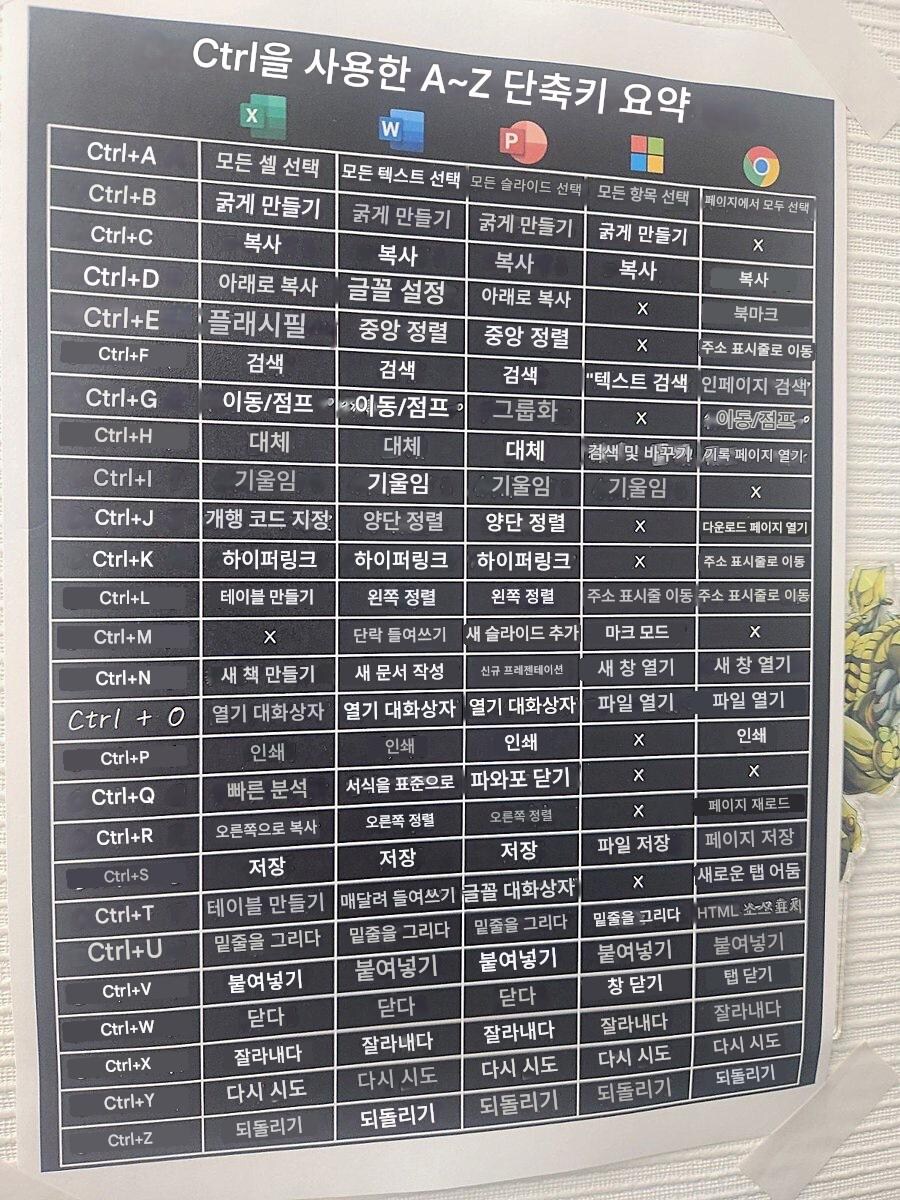 Ctrl을 사용한 A~Z 단축키 요약
Ctrl+A 모든 셀 선택 모든 텍스트 선택 모든 슬라이드 선택 모든 항목 선택 페이지에서 모두 선택
Ctrl+B 굵게 만들기 굵게 만들기 굵게 만들기 굵게 만들기 X
Ctrl+C 복사 복사 복사 복사 복사
Ctrl+D 아래로 복사 글꼴 설정 아래로 복사 X 북마크
Ctrl+E 플래시필 중앙 정렬 중앙 정렬 X 주소 표시줄로 이동
Ctrl+F 검색 검색 검색 "텍스트 검색 인페이지 검색"
Ctrl+G 이동/점프 이동/점프 그룹화 X 이동/점프
Ctrl+H 대체 대체 대체 검색 및 바꾸기 기록 페이지 열기
Ctrl+I 기울임 기울임 기울임 기울임 X
Ctrl+J 개행 코드 지정 양단 정렬 양단 정렬 X 다운로드 페이지 열기
Ctrl+K 하이퍼링크 하이퍼링크 하이퍼링크 X 주소 표시줄로 이동
Ctrl+L 테이블 만들기 왼쪽 정렬 왼쪽 정렬 주소 표시줄 이동 주소 표시줄로 이동
Ctrl+M X 단락 들여쓰기 새 슬라이드 추가 마크 모드 X
Ctrl+N 새 책 만들기 새 문서 작성 신규 프레젠테이션 새 창 열기 새 창 열기
Ctrl + O 열기 대화상자 열기 대화상자 열기 대화상자 파일 열기 파일 열기
Ctrl+P 인쇄 인쇄 인쇄 X 인쇄
Ctrl+Q 빠른 분석 서식을 표준으로 파와포 닫기 X X
Ctrl+R 오른쪽으로 복사 오른쪽 정렬 오른쪽 정렬 X 페이지 재로드
Ctrl+S 저장 저장 저장 파일 저장 페이지 저장
Ctrl+T 테이블 만들기 매달려 들여쓰기 글꼴 대화상자 X 새로운 탭 어둠
Ctrl+U 밑줄을 그리다 밑줄을 그리다 밑줄을 그리다 밑줄을 그리다 HTML
Ctrl+V 붙여넣기 붙여넣기 붙여넣기 붙여넣기 붙여넣기
Ctrl+W 닫다 닫다 닫다 창 닫기 탭 닫기
Ctrl+X 잘라내다 잘라내다 잘라내다 잘라내다 잘라내다
Ctrl+Y 다시 시도 다시 시도 다시 시도 다시 시도 다시 시도
Ctrl+Z 되돌리기 되돌리기 되돌리기 되돌리기 되돌리기